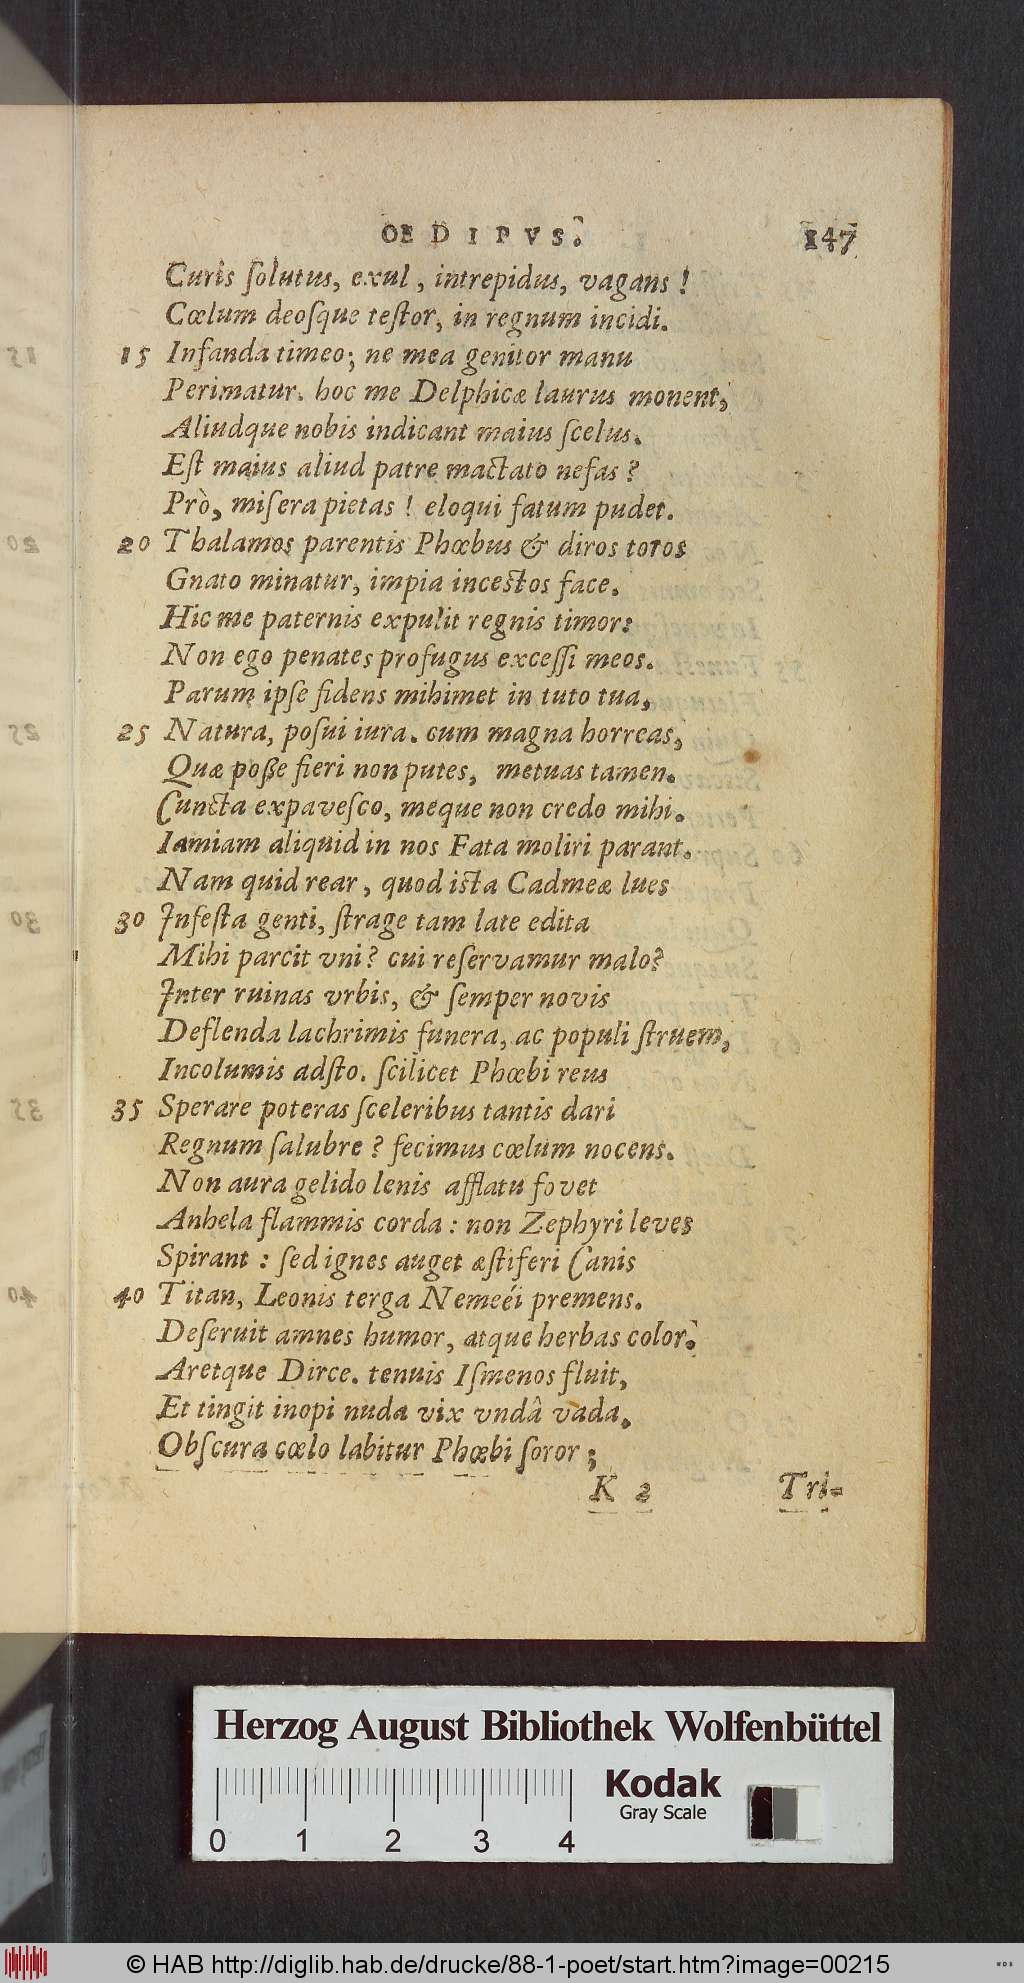 OEDIPVS. 147
Curis ſolutus, exul, intrepidus, vagans!
Cœlum deoſque teſtor, in regnum incidi.
15 Infanda timeo; ne mea genitor manu
Perimatur. hoc me Delphicæ laurus monent,
Aliudque nobis indicant maius ſcelus.
Eſt maius aliud patre mactato nefas?
Prò, miſera pietas! eloqui fatum pudet.
20 Thalamos parentis Phœbus & diros toros
Gnato minatur, impia inceſtos face.
Hic me paternis expulit regnis timor:
Non ego penates profugus exceſſi meos.
Parum ipſe fidens mihimet in tuto tua,
25 Natura, poſui iura. cum magna horreas,
Quæ poße fieri non putes, metuas tamen.
Cuncta expaveſco, meque non credo mihi.
Iamiam aliquid in nos Fata moliri parant.
Nam quid rear, quod iſta Cadmeæ lues
30 Infeſta genti, ſtrage tam late edita
Mihi parcit vni? cui reſervamur malo?
Inter ruinas vrbis, & ſemper novis
Deflenda lachrimis funera, ac populi ſtruem,
Incolumis adſto. ſcilicet Phœbi reus
35 Sperare poteras ſceleribus tantis dari
Regnum ſalubre? fecimus cœlum nocens.
Non aura gelido lenis afflatu fovet
Anhela flammis corda: non Zephyri leves
Spirant: ſed ignes auget æſtiferi Canis
40 Titan, Leonis terga Nemeéi premens.
Deſeruit amnes humor, atque herbas color.
Aretque Dirce. tenuis Iſmenos fluit,
Et tingit inopi nuda vix vndâ vada.
Obſcura cœlo labitur Phœbi ſoror;
K 2 Tri-
Herzog August Bibliothek Wolfenbüttel
Kodak
Gray Scale
0 1 2 3 4
© HAB http://diglib.hab.de/drucke/88-1-poet/start.htm?image=00215